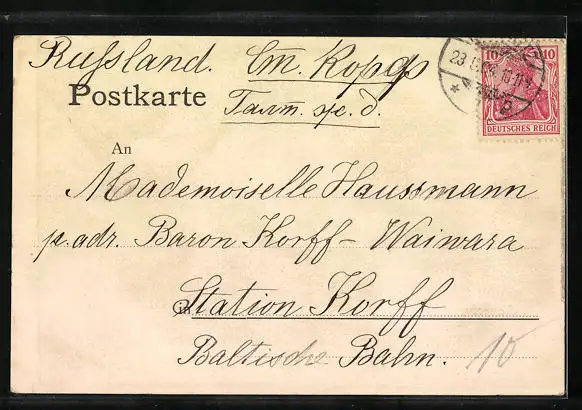 Russland. Ст. Корфъ
Postkarte Балт. ж. д.
10 10
DEUTSCHES REICH
An
Mademoiselle Haussmann
p. adr. Baron Korff - Waiwara
in Station Korff
Baltische Bahn. 10